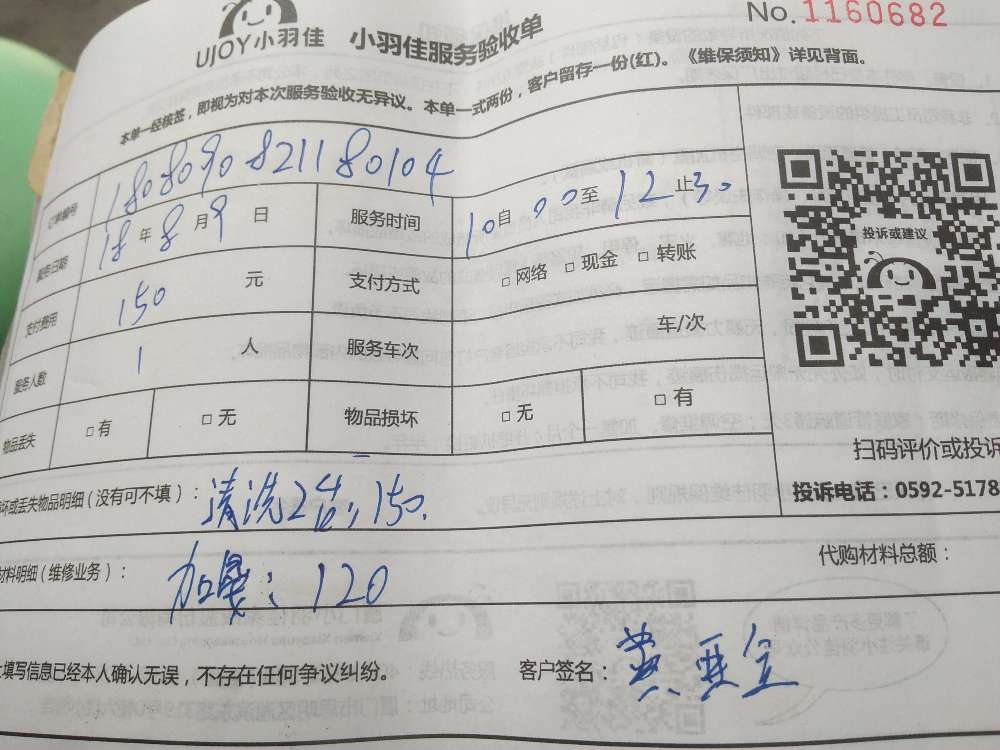 UJOY小羽佳 小羽佳服务验收单 No. 1160682
本单一经核签，即视为对本次服务验收无异议。本单一式两份，客户留存一份(红)。《维保须知》详见背面。
订单编号 1808090821180104
服务日期 18 年 8 月 9 日 服务时间 10 自 00 至 12 止 30
支付费用 150 元 支付方式 □ 网络 □ 现金 □ 转账
服务人数 1 人 服务车次 车/次
物品丢失 □ 有 □ 无 物品损坏 □ 无 □ 有
投诉或建议
扫码评价或投诉
投诉电话：0592-5178
坏或丢失物品明细（没有可不填）： 清洗2台，150.
材料明细（维修业务）： 加氟：120
代购材料总额：
填写信息已经本人确认无误，不存在任何争议纠纷。 客户签名：黄亚全